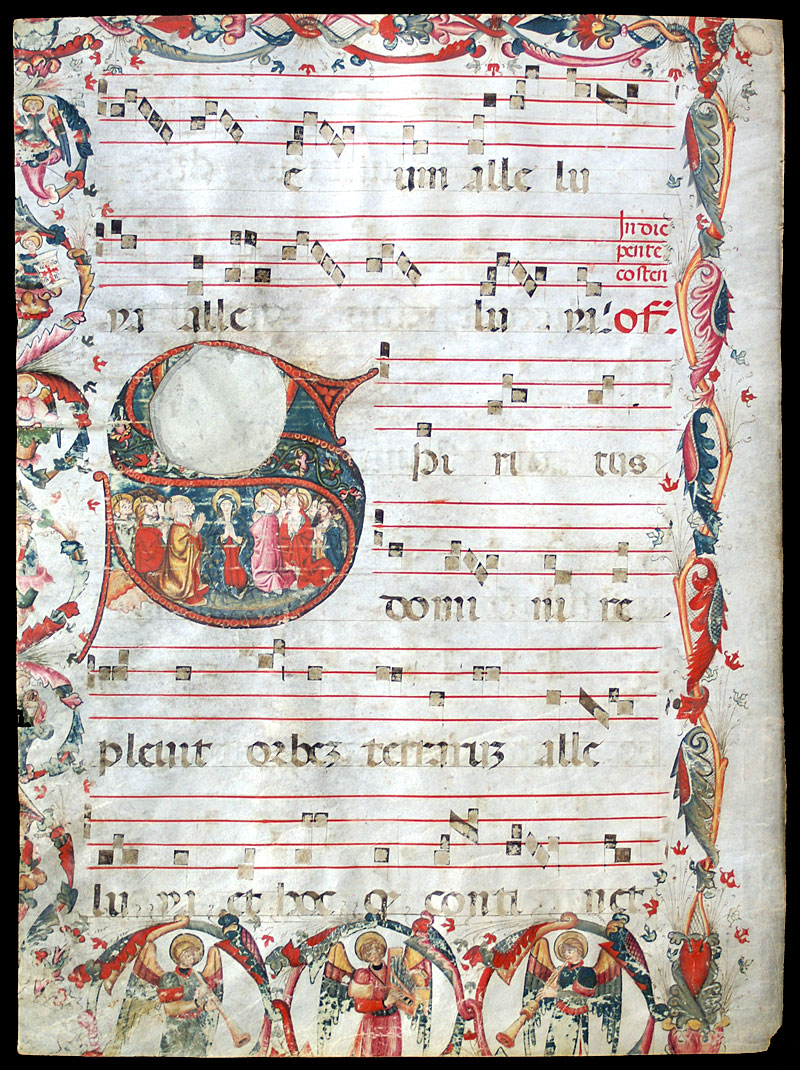 e um alle lu
In die
pente
costen
ya alle lu ya. of.
Spi ri tus
domi ni re
pleuit orbez terraruz alle
lu ya et hoc q conti net